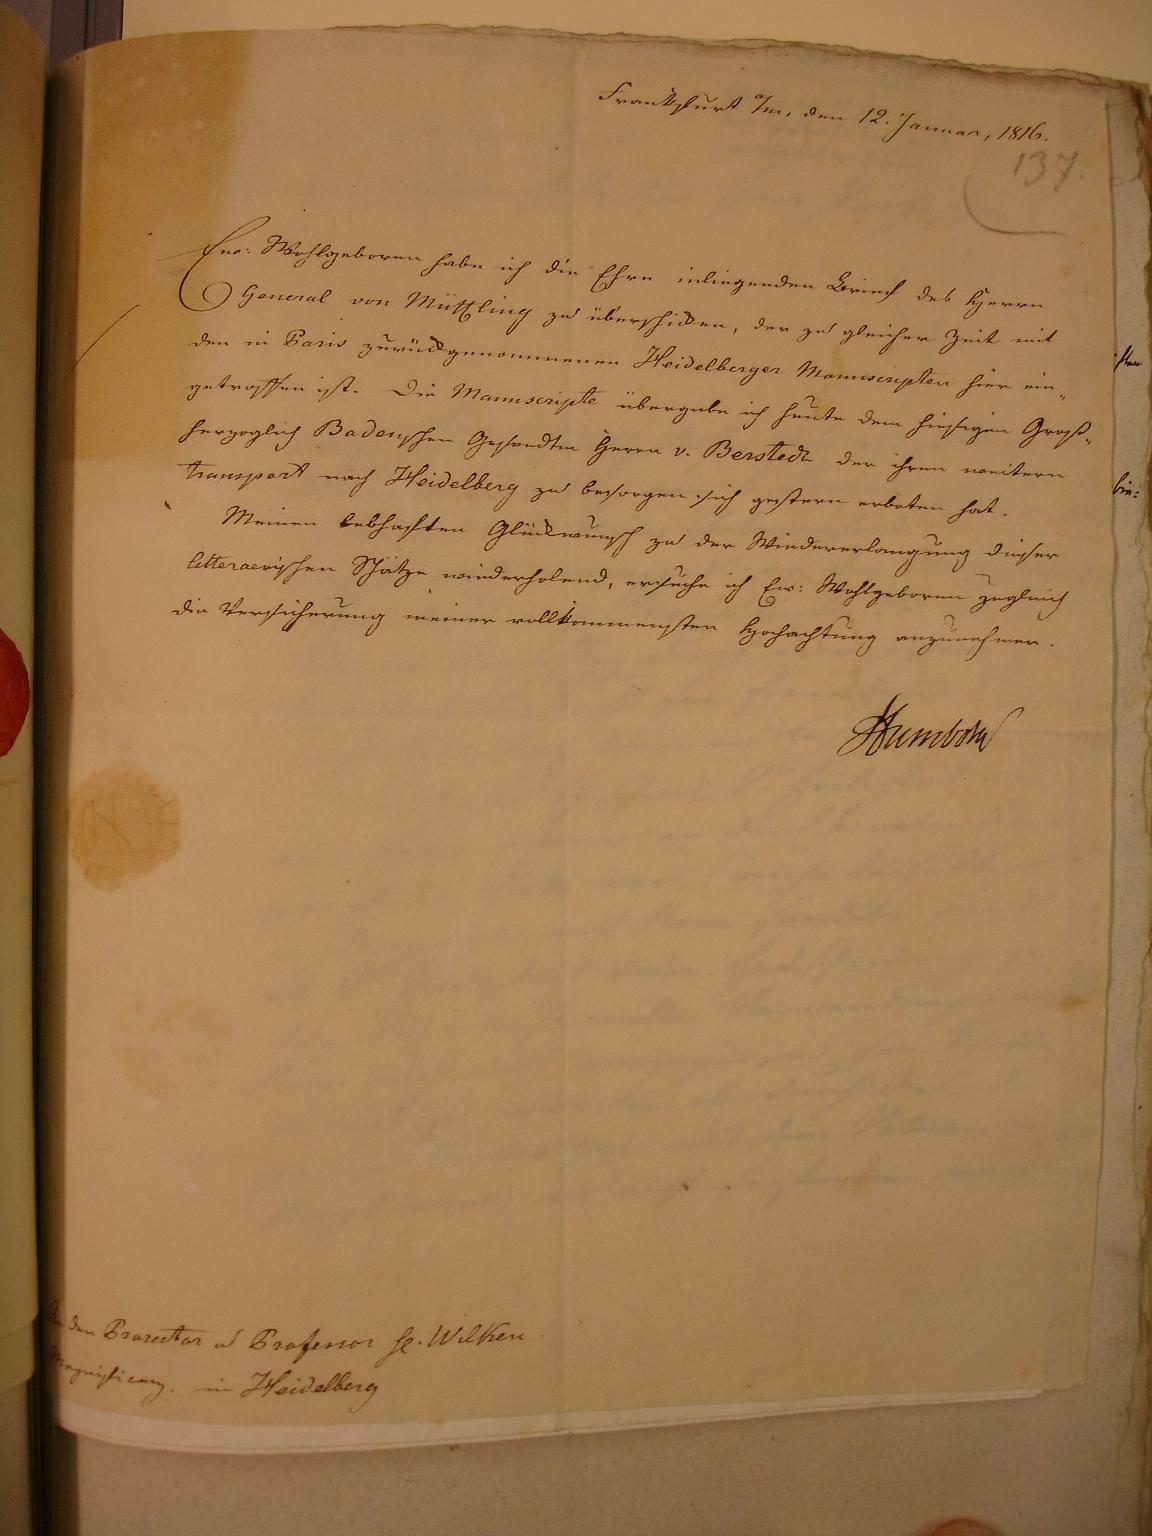 Frankfurt a/m, den 12. Januar, 1816.
137.
Ew: Wohlgeboren habe ich die Ehre inliegenden Brief des Herrn
General von Müffling zu überschicken, der zu gleicher Zeit mit
den in Paris zurückgenommenen Heidelberger Manuscripten hier ein-
getroffen ist. Die Manuscripte übergebe ich heute dem hiesigen Groß-
herzoglich Badenschen Gesandten Herrn v. Berstedt der ihren weitern
transport nach Heidelberg zu besorgen sich gestern erboten hat.
Meinen lebhaften Glückwunsch zu der Wiedererlangung dieser
litteraerischen Schätze wiederholend, ersuche ich Ew: Wohlgeboren zugleich
die Versicherung meiner vollkommensten Hochachtung anzunehmen.
Humboldt
An den Prorector u Professor H. Wilken
Magnificenz. in Heidelberg